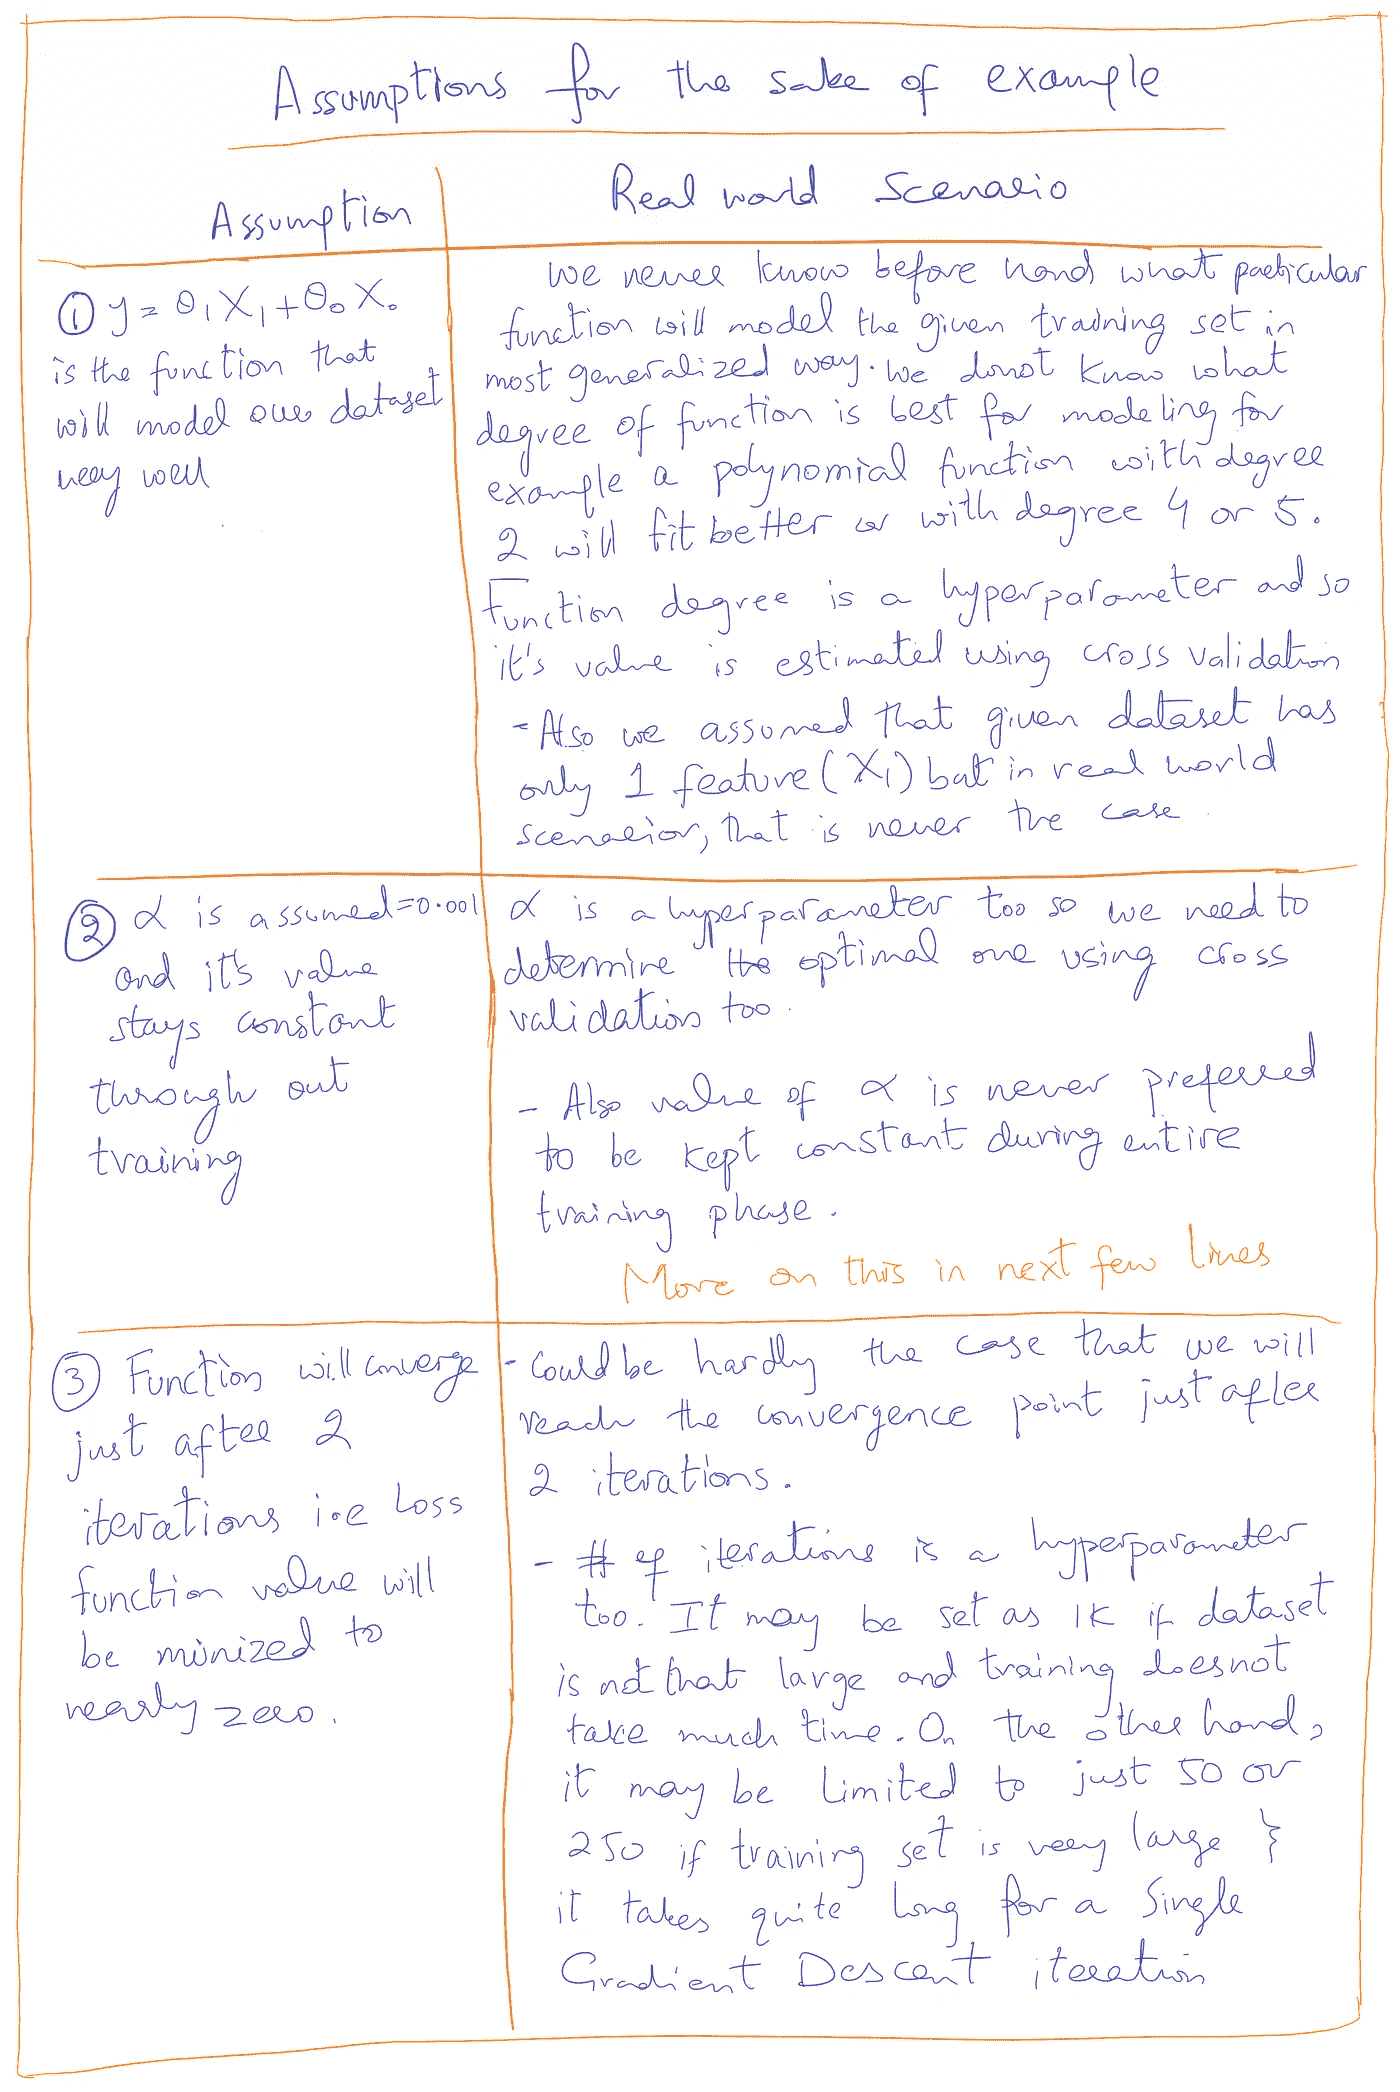 Assumptions for the sake of example
Assumption
Real world Scenario
① y = θ₁X₁+θ₀X₀
is the function that
will model our dataset
very well
we never know before hand what particular
function will model the given training set in
most generalized way. we donot know what
degree of function is best for modeling for
example a polynomial function with degree
2 will fit better or with degree 4 or 5.
Function degree is a hyperparameter and so
it's value is estimated using cross validation
- Also we assumed that given dataset has
only 1 feature (X₁) but in real world
scenarior, that is never the case.
② α is assumed=0.001
and it's value
stays constant
through out
training
α is a hyperparameter too so we need to
determine the optimal one using cross
validation too.
- Also value of α is never prefered
to be kept constant during entire
training phase.
More on this in next few lines
③ Function will converge
just after 2
iterations i.e Loss
function value will
be minized to
nearly zero.
- Could be hardly the case that we will
reach the convergence point just after
2 iterations.
- # of iterations is a hyperparameter
too. It may be set as 1K if dataset
is not that large and training doesnot
take much time. On the other hand,
it may be limited to just 50 or
250 if training set is very large &
it takes quite long for a Single
Gradient Descent iteration